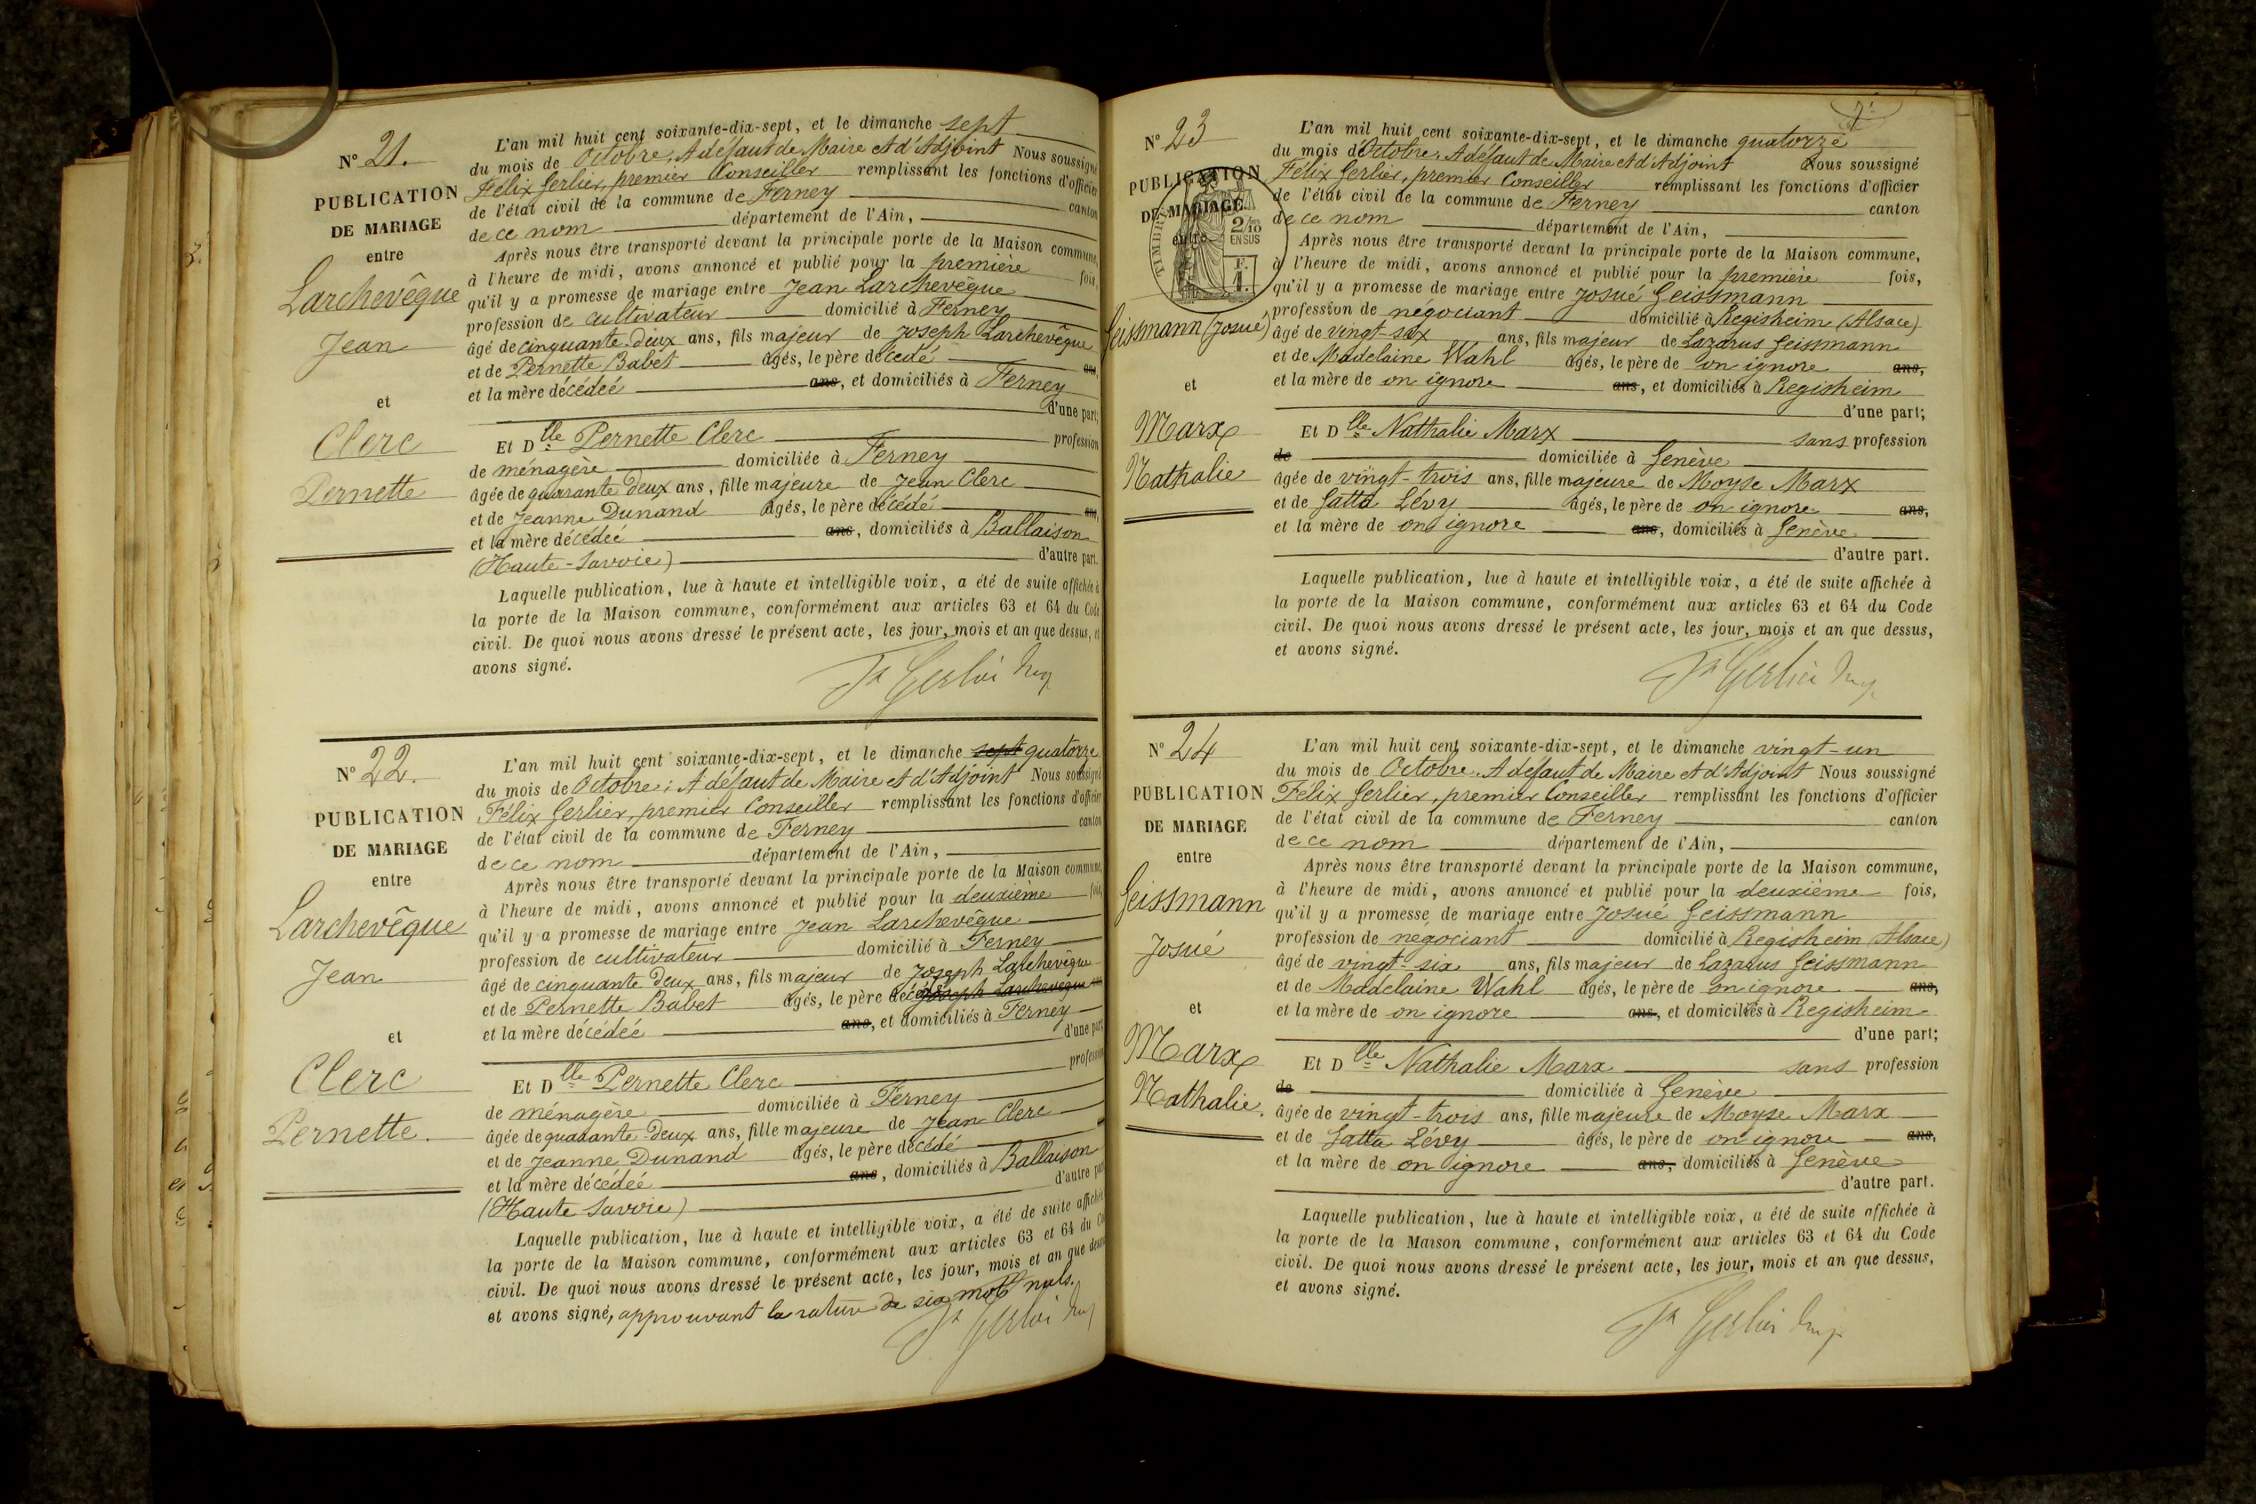 N° 21.
PUBLICATION
DE MARIAGE
entre
Larchevêque
Jean
et
Clerc
Pernette
L'an mil huit cent soixante-dix-sept, et le dimanche sept
du mois de Octobre, A défaut de Maire et d'Adjoint Nous soussigné
Félix Gerlier, premier Conseiller remplissant les fonctions d'officier
de l'état civil de la commune de Ferney canton
de ce nom département de l'Ain,
Après nous être transporté devant la principale porte de la Maison commune,
à l'heure de midi, avons annoncé et publié pour la première fois,
qu'il y a promesse de mariage entre Jean Larchevêque
profession de cultivateur domicilié à Ferney
âgé de cinquante-deux ans, fils majeur de Joseph Larchevêque
et de Pernette Babet âgés, le père décédé ans,
et la mère décédéé ans, et domiciliés à Ferney
d'une part;
Et Dlle Pernette Clerc profession
de ménagère domiciliée à Ferney
âgée de quarante deux ans, fille majeure de Jean Clerc
et de Jeanne Dunand âgés, le père décédé ans,
et la mère décédéé ans, domiciliés à Ballaison
(Haute-Savoie) d'autre part.
Laquelle publication, lue à haute et intelligible voix, a été de suite affichée à
la porte de la Maison commune, conformément aux articles 63 et 64 du Code
civil. De quoi nous avons dressé le présent acte, les jour, mois et an que dessus, et
avons signé.
N° 22.
PUBLICATION
DE MARIAGE
entre
Larchevêque
Jean
et
Clerc
Pernette.
L'an mil huit cent soixante-dix-sept, et le dimanche sept quatorze
du mois de Octobre; A défaut de Maire et d'Adjoint Nous soussigné
Félix Gerlier, premier Conseiller remplissant les fonctions d'officier
de l'état civil de la commune de Ferney canton
de ce nom département de l'Ain,
Après nous être transporté devant la principale porte de la Maison commune,
à l'heure de midi, avons annoncé et publié pour la deuxième fois,
qu'il y a promesse de mariage entre Jean Larchevêque
profession de cultivateur domicilié à Ferney
âgé de cinquante deux ans, fils majeur de Joseph Larchevêque
et de Pernette Babet âgés, le père décédé Joseph Larchevêque ans
et la mère décédéé ans, et domiciliés à Ferney
d'une part
Et Dlle Pernette Clerc profession
de ménagère domiciliée à Ferney
âgée de quarante-deux ans, fille majeure de Jean Clerc
et de Jeanne Dunand âgés, le père décédé
et la mère décédéé ans, domiciliés à Ballaison
(Haute Savoie) d'autre part
Laquelle publication, lue à haute et intelligible voix, a été de suite affichée
la porte de la Maison commune, conformément aux articles 63 et 64 du Co
civil. De quoi nous avons dressé le présent acte, les jour, mois et an que dessus
et avons signé, approuvant la rature de six mots nuls.
7
N° 23
PUBLICATION
DE MARIAGE
entre
TIMBRE
2/10
EN SUS
F.
1.
Geissmann (Josué)
et
Marx
Nathalie
L'an mil huit cent soixante-dix-sept, et le dimanche quatorze
du mois d'Octobre. A défaut de Maire et d'Adjoint Nous soussigné
Félix Gerlier, premier Conseiller remplissant les fonctions d'officier
de l'état civil de la commune de Ferney canton
de ce nom département de l'Ain,
Après nous être transporté devant la principale porte de la Maison commune,
à l'heure de midi, avons annoncé et publié pour la première fois,
qu'il y a promesse de mariage entre Josué Geissmann
profession de négociant domicilié à Regisheim (Alsace)
âgé de vingt-six ans, fils majeur de Lazarus Geissmann
et de Madelaine Wahl âgés, le père de on ignore ans,
et la mère de on ignore ans, et domiciliés à Regisheim
d'une part;
Et Dlle Nathalie Marx sans profession
de domiciliée à Genève
âgée de vingt-trois ans, fille majeure de Moyse Marx
et de Gatta Lévy âgés, le père de on ignore ans,
et la mère de on ignore ans, domiciliés à Genève
d'autre part.
Laquelle publication, lue à haute et intelligible voix, a été de suite affichée à
la porte de la Maison commune, conformément aux articles 63 et 64 du Code
civil. De quoi nous avons dressé le présent acte, les jour, mois et an que dessus,
et avons signé.
N° 24
PUBLICATION
DE MARIAGE
entre
Geissmann
Josué
et
Marx
Nathalie.
L'an mil huit cent soixante-dix-sept, et le dimanche vingt-un
du mois de Octobre. A défaut de Maire et d'Adjoint Nous soussigné
Félix Gerlier, premier Conseiller remplissant les fonctions d'officier
de l'état civil de la commune de Ferney canton
de ce nom département de l'Ain,
Après nous être transporté devant la principale porte de la Maison commune,
à l'heure de midi, avons annoncé et publié pour la deuxième fois,
qu'il y a promesse de mariage entre Josué Geissmann
profession de négociant domicilié à Regisheim (Alsace)
âgé de vingt-six ans, fils majeur de Lazarus Geissmann
et de Madelaine Wahl âgés, le père de on ignore ans,
et la mère de on ignore ans, et domiciliés à Regisheim
d'une part;
Et Dlle Nathalie Marx sans profession
de domiciliée à Genève
âgée de vingt-trois ans, fille majeure de Moyse Marx
et de Gatta Lévy âgés, le père de on ignore ans,
et la mère de on ignore ans, domiciliés à Genève
d'autre part.
Laquelle publication, lue à haute et intelligible voix, a été de suite affichée à
la porte de la Maison commune, conformément aux articles 63 et 64 du Code
civil. De quoi nous avons dressé le présent acte, les jour, mois et an que dessus,
et avons signé.